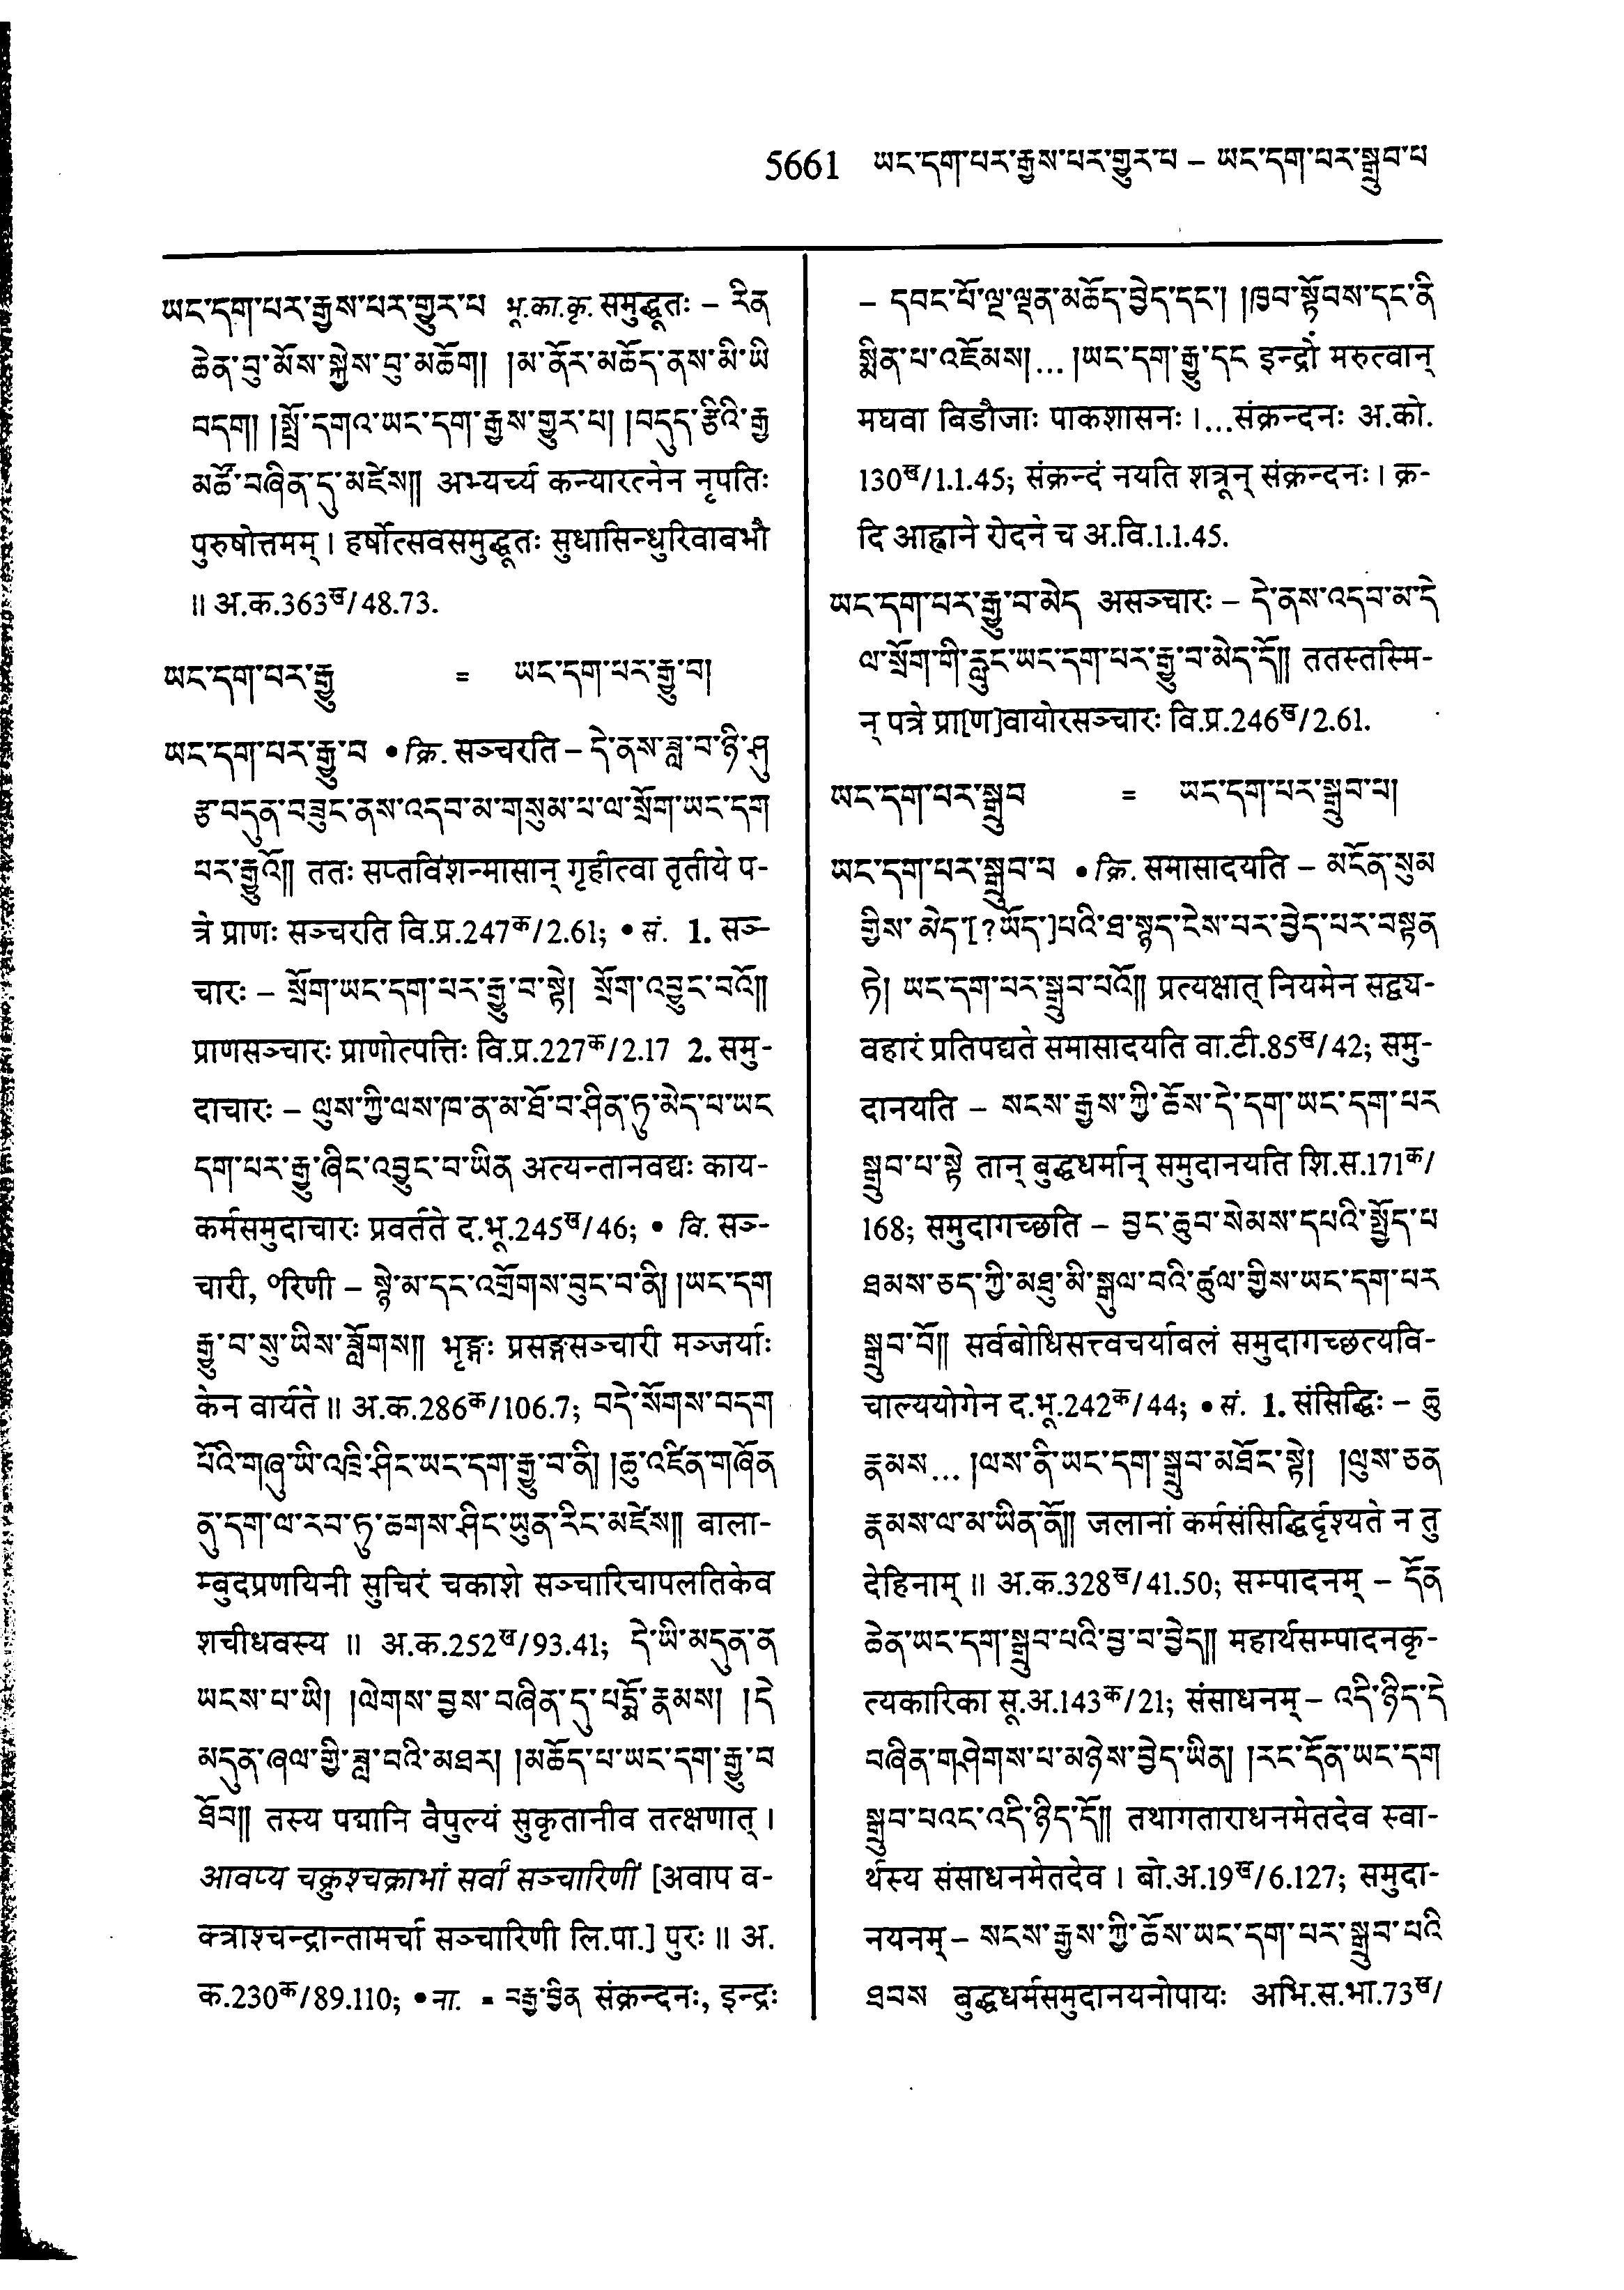 5661 ཡང་དག་པར་རྒྱས་པར་གྱུར་པ – ཡང་དག་པར་སྒྲུབ་པ
ཡང་དག་པར་རྒྱས་པར་གྱུར་པ भू.का.कृ. समुद्धूतः – རིན
ཆེན་བུ་མོས་སྐྱེས་བུ་མཆོག། །མ་ནོར་མཆོད་ནས་མི་ཡི
བདག། །སྤྲོ་དགའ་ཡང་དག་རྒྱས་གྱུར་པ། །བདུད་རྩིའི་རྒྱ
མཚོ་བཞིན་དུ་མཛེས།། अभ्यर्च्य कन्यारत्नेन नृपतिः
पुरुषोत्तमम् । हर्षोत्सवसमुद्धूतः सुधासिन्धुरिवाबभौ
॥ अ.क.363ख/48.73.
ཡང་དག་པར་རྒྱུ = ཡང་དག་པར་རྒྱུ་བ།
ཡང་དག་པར་རྒྱུ་བ • क्रि. सञ्चरति – དེ་ནས་ཟླ་བ་ཉི་ཤུ
རྩ་བདུན་བཟུང་ནས་འདབ་མ་གསུམ་པ་ལ་སྲོག་ཡང་དག
པར་རྒྱུའོ།། ततः सप्तविंशन्मासान् गृहीत्वा तृतीये प-
त्रे प्राणः सञ्चरति वि.प्र.247क/2.61; • सं. 1. सञ्-
चारः – སྲོག་ཡང་དག་པར་རྒྱུ་བ་སྟེ། སྲོག་འབྱུང་བའོ།།
प्राणसञ्चारः प्राणोत्पत्तिः वि.प्र.227क/2.17 2. समु-
दाचारः – ལུས་ཀྱི་ལས་ཁ་ན་མ་ཐོ་བ་ཤིན་ཏུ་མེད་པ་ཡང
དག་པར་རྒྱུ་ཞིང་འབྱུང་བ་ཡིན अत्यन्तानवद्यः काय-
कर्मसमुदाचारः प्रवर्तते द.भू.245ख/46; • वि. सञ्-
चारी, ०रिणी – སྙེ་མ་དང་འགྲོགས་བུང་བ་ནི། །ཡང་དག
རྒྱུ་བ་སུ་ཡིས་ཟློགས།། भृङ्गः प्रसङ्गसञ्चारी मञ्जर्याः
केन वार्यते ॥ अ.क.286क/106.7; བདེ་སོགས་བདག
པོའི་གཞུ་ཡི་འཁྲི་ཤིང་ཡང་དག་རྒྱུ་བ་ནི། །ཆུ་འཛིན་གཞོན
ནུ་དག་ལ་རབ་ཏུ་ཆགས་ཤིང་ཡུན་རིང་མཛེས།། बाला-
म्बुदप्रणयिनी सुचिरं चकाशे सञ्चारिचापलतिकेव
शचीधवस्य ॥ अ.क.252ख/93.41; དེ་ཡི་མདུན་ན
ཡངས་པ་ཡི། །ལེགས་བྱས་བཞིན་དུ་པདྨོ་རྣམས། །དེ
མདུན་ཞལ་གྱི་ཟླ་བའི་མཐར། །མཆོད་པ་ཡང་དག་རྒྱུ་བ
ཐོབ།། तस्य पद्मानि वैपुल्यं सुकृतानीव तत्क्षणात् ।
आवप्य चक्रुश्चक्राभां सर्वां सञ्चारिणीं [अवाप व-
क्त्राश्चन्द्रान्तामर्चा सञ्चारिणी लि.पा.] पुरः ॥ अ.
क.230क/89.110; • ना. = བརྒྱ་བྱིན संक्रन्दनः, इन्द्रः
– དབང་པོ་ལྔ་ལྡན་མཆོད་བྱེད་དང་། །ཁྱབ་སྟོབས་དང་ནི
སྨིན་པ་འཇོམས།... །ཡང་དག་རྒྱུ་དང इन्द्रो मरुत्वान्
मघवा बिडौजाः पाकशासनः ।...संक्रन्दनः अ.को.
130ख/1.1.45; संक्रन्दं नयति शत्रून् संक्रन्दनः । क्र-
दि आह्वाने रोदने च अ.वि.1.1.45.
ཡང་དག་པར་རྒྱུ་བ་མེད असञ्चारः – དེ་ནས་འདབ་མ་དེ
ལ་སྲོག་གི་རླུང་ཡང་དག་པར་རྒྱུ་བ་མེད་དོ།། ततस्तस्मि-
न् पत्रे प्रा[ण]वायोरसञ्चारः वि.प्र.246ख/2.61.
ཡང་དག་པར་སྒྲུབ = ཡང་དག་པར་སྒྲུབ་པ།
ཡང་དག་པར་སྒྲུབ་པ • क्रि. समासादयति – མངོན་སུམ
གྱིས་མེད་[?ཡོད་]པའི་ཐ་སྙད་ངེས་པར་བྱེད་པར་བསྟན
ཏེ། ཡང་དག་པར་སྒྲུབ་པའོ།། प्रत्यक्षात् नियमेन सद्व्य-
वहारं प्रतिपद्यते समासादयति वा.टी.85ख/42; समु-
दानयति – སངས་རྒྱས་ཀྱི་ཆོས་དེ་དག་ཡང་དག་པར
སྒྲུབ་པ་སྟེ तान् बुद्धधर्मान् समुदानयति शि.स.171क/
168; समुदागच्छति – བྱང་ཆུབ་སེམས་དཔའི་སྤྱོད་པ
ཐམས་ཅད་ཀྱི་མཐུ་མི་སྒུལ་བའི་ཚུལ་གྱིས་ཡང་དག་པར
སྒྲུབ་བོ།། सर्वबोधिसत्त्वचर्याबलं समुदागच्छत्यवि-
चाल्ययोगेन द.भू.242क/44; • सं. 1. संसिद्धिः – ཆུ
རྣམས... །ལས་ནི་ཡང་དག་སྒྲུབ་མཐོང་སྟེ། །ལུས་ཅན
རྣམས་ལ་མ་ཡིན་ནོ།། जलानां कर्मसंसिद्धिर्दृश्यते न तु
देहिनाम् ॥ अ.क.328ख/41.50; सम्पादनम् – དོན
ཆེན་ཡང་དག་སྒྲུབ་པའི་བྱ་བ་བྱེད།། महार्थसम्पादनकृ-
त्यकारिका सू.अ.143क/21; संसाधनम् – འདི་ཉིད་དེ
བཞིན་གཤེགས་པ་མཉེས་བྱེད་ཡིན། །རང་དོན་ཡང་དག
སྒྲུབ་པའང་འདི་ཉིད་དོ།། तथागताराधनमेतदेव स्वा-
र्थस्य संसाधनमेतदेव । बो.अ.19ख/6.127; समुदा-
नयनम् – སངས་རྒྱས་ཀྱི་ཆོས་ཡང་དག་པར་སྒྲུབ་པའི
ཐབས बुद्धधर्मसमुदानयनोपायः अभि.स.भा.73ख/